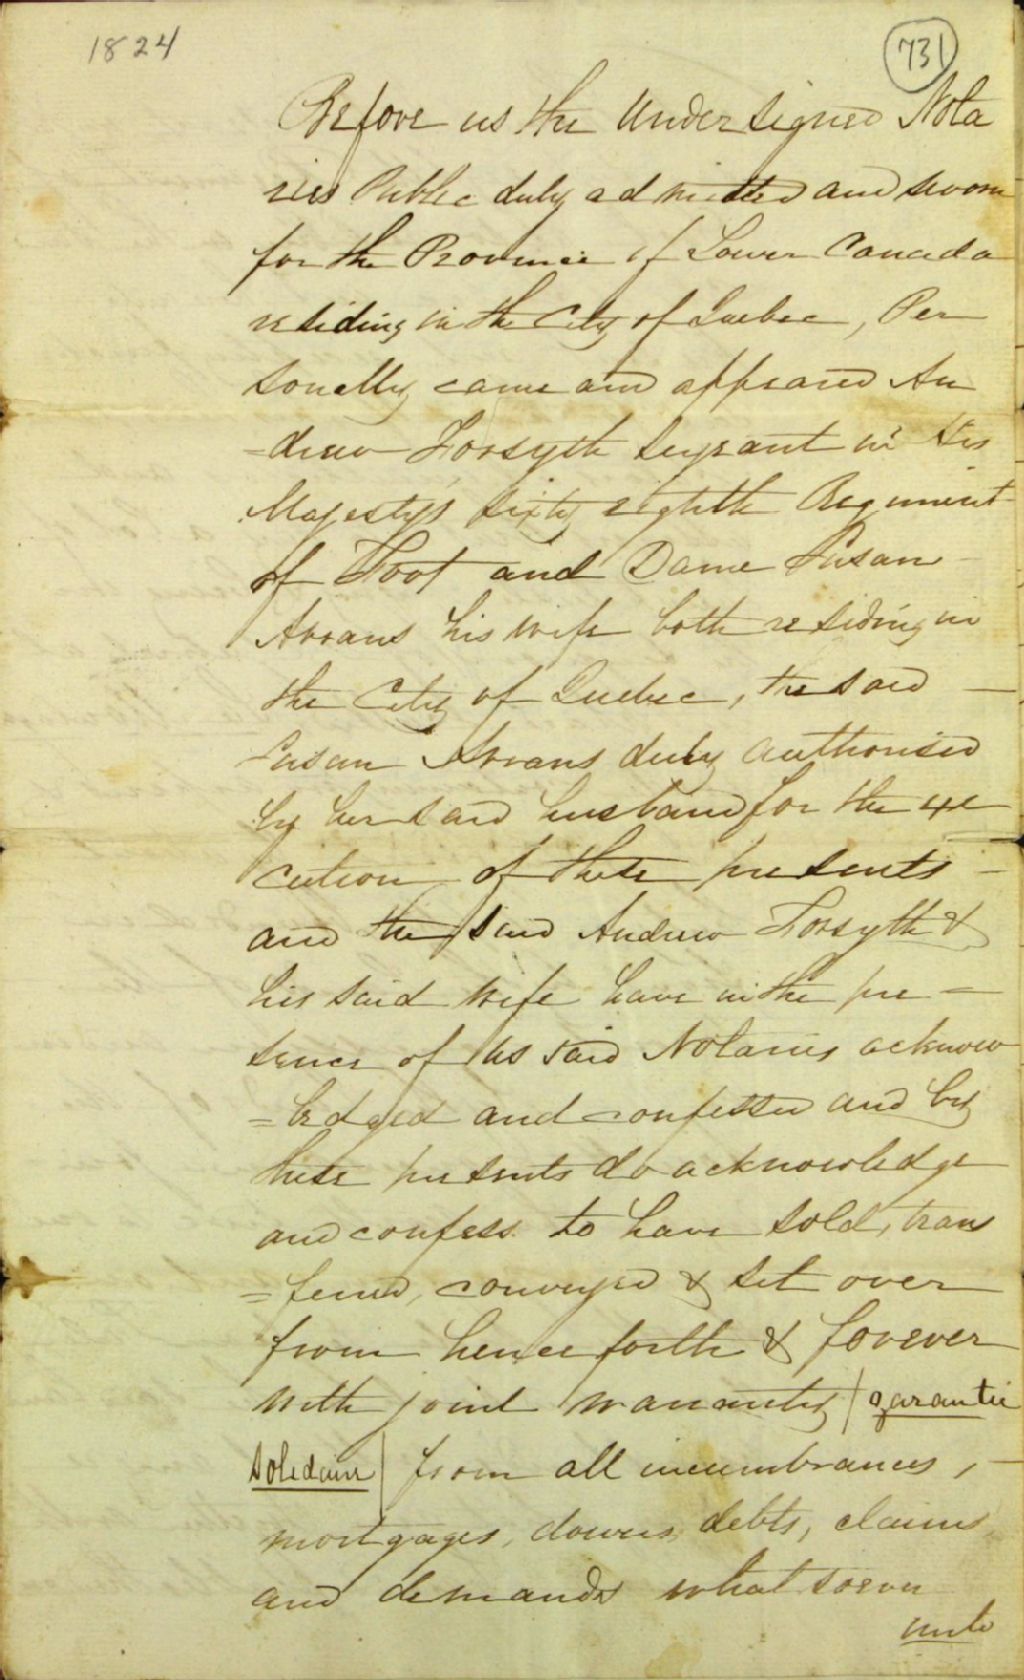 1824
731
Before us the Undersigned Nota
ries Public duly admitted and sworn
for the Province of Lower Canada
residing in the City of Quebec, Per
sonally came and appeared An
=drew Forsyth Serjeant in His
Majesty's Sixty eighth Regiment
of Foot and Dame Susan
his wife both residing in
the City of Quebec, the said —
Susan duly authorised
by her said husband for the exe
cution of these presents —
and the said Andrew Forsyth &
his said wife have in the pre =
sence of us said Notaries acknow
=ledged and confessed and by
these presents do acknowledge
and confess to have sold, trans
=ferred, conveyed & set over
from henceforth & forever
with joint warranty (garantie
solidaire) from all incumbrances, —
mortgages, dowers, debts, claims,
and demands whatsoever
unto